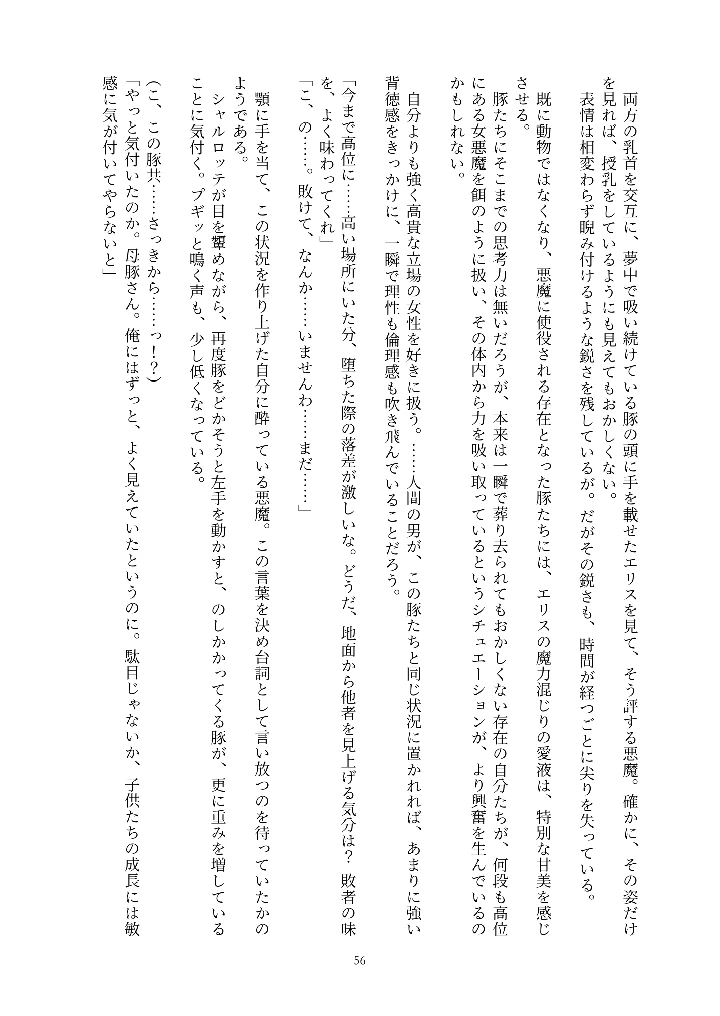 両方の乳首を交互に、夢中で吸い続けている豚の頭に手を載せたエリスを見て、そう評する悪魔。確かに、その姿だけ
を見れば、授乳をしているようにも見えてもおかしくない。
表情は相変わらず睨み付けるような鋭さを残しているが。だがその鋭さも、時間が経つごとに尖りを失っている。
既に動物ではなくなり、悪魔に使役される存在となった豚たちには、エリスの魔力混じりの愛液は、特別な甘美を感じ
させる。
豚たちにそこまでの思考力は無いだろうが、本来は一瞬で葬り去られてもおかしくない存在の自分たちが、何段も高位
にある女悪魔を餌のように扱い、その体内から力を吸い取っているというシチュエーションが、より興奮を生んでいるの
かもしれない。
自分よりも強く高貴な立場の女性を好きに扱う。……人間の男が、この豚たちと同じ状況に置かれれば、あまりに強い
背徳感をきっかけに、一瞬で理性も倫理感も吹き飛んでいることだろう。
「今まで高位に……高い場所にいた分、堕ちた際の落差が激しいな。どうだ、地面から他者を見上げる気分は？ 敗者の味
を、よく味わってくれ」
「こ、の……。敗けて、なんか……いませんわ……まだ……」
顎に手を当て、この状況を作り上げた自分に酔っている悪魔。この言葉を決め台詞として言い放つのを待っていたかの
ようである。
シャルロッテが目を顰めながら、再度豚をどかそうと左手を動かすと、のしかかってくる豚が、更に重みを増している
ことに気付く。ブギッと鳴く声も、少し低くなっている。
（こ、この豚共……さっきから……っ！？）
「やっと気付いたのか。母豚さん。俺にはずっと、よく見えていたというのに。駄目じゃないか、子供たちの成長には敏
感に気が付いてやらないと」
56